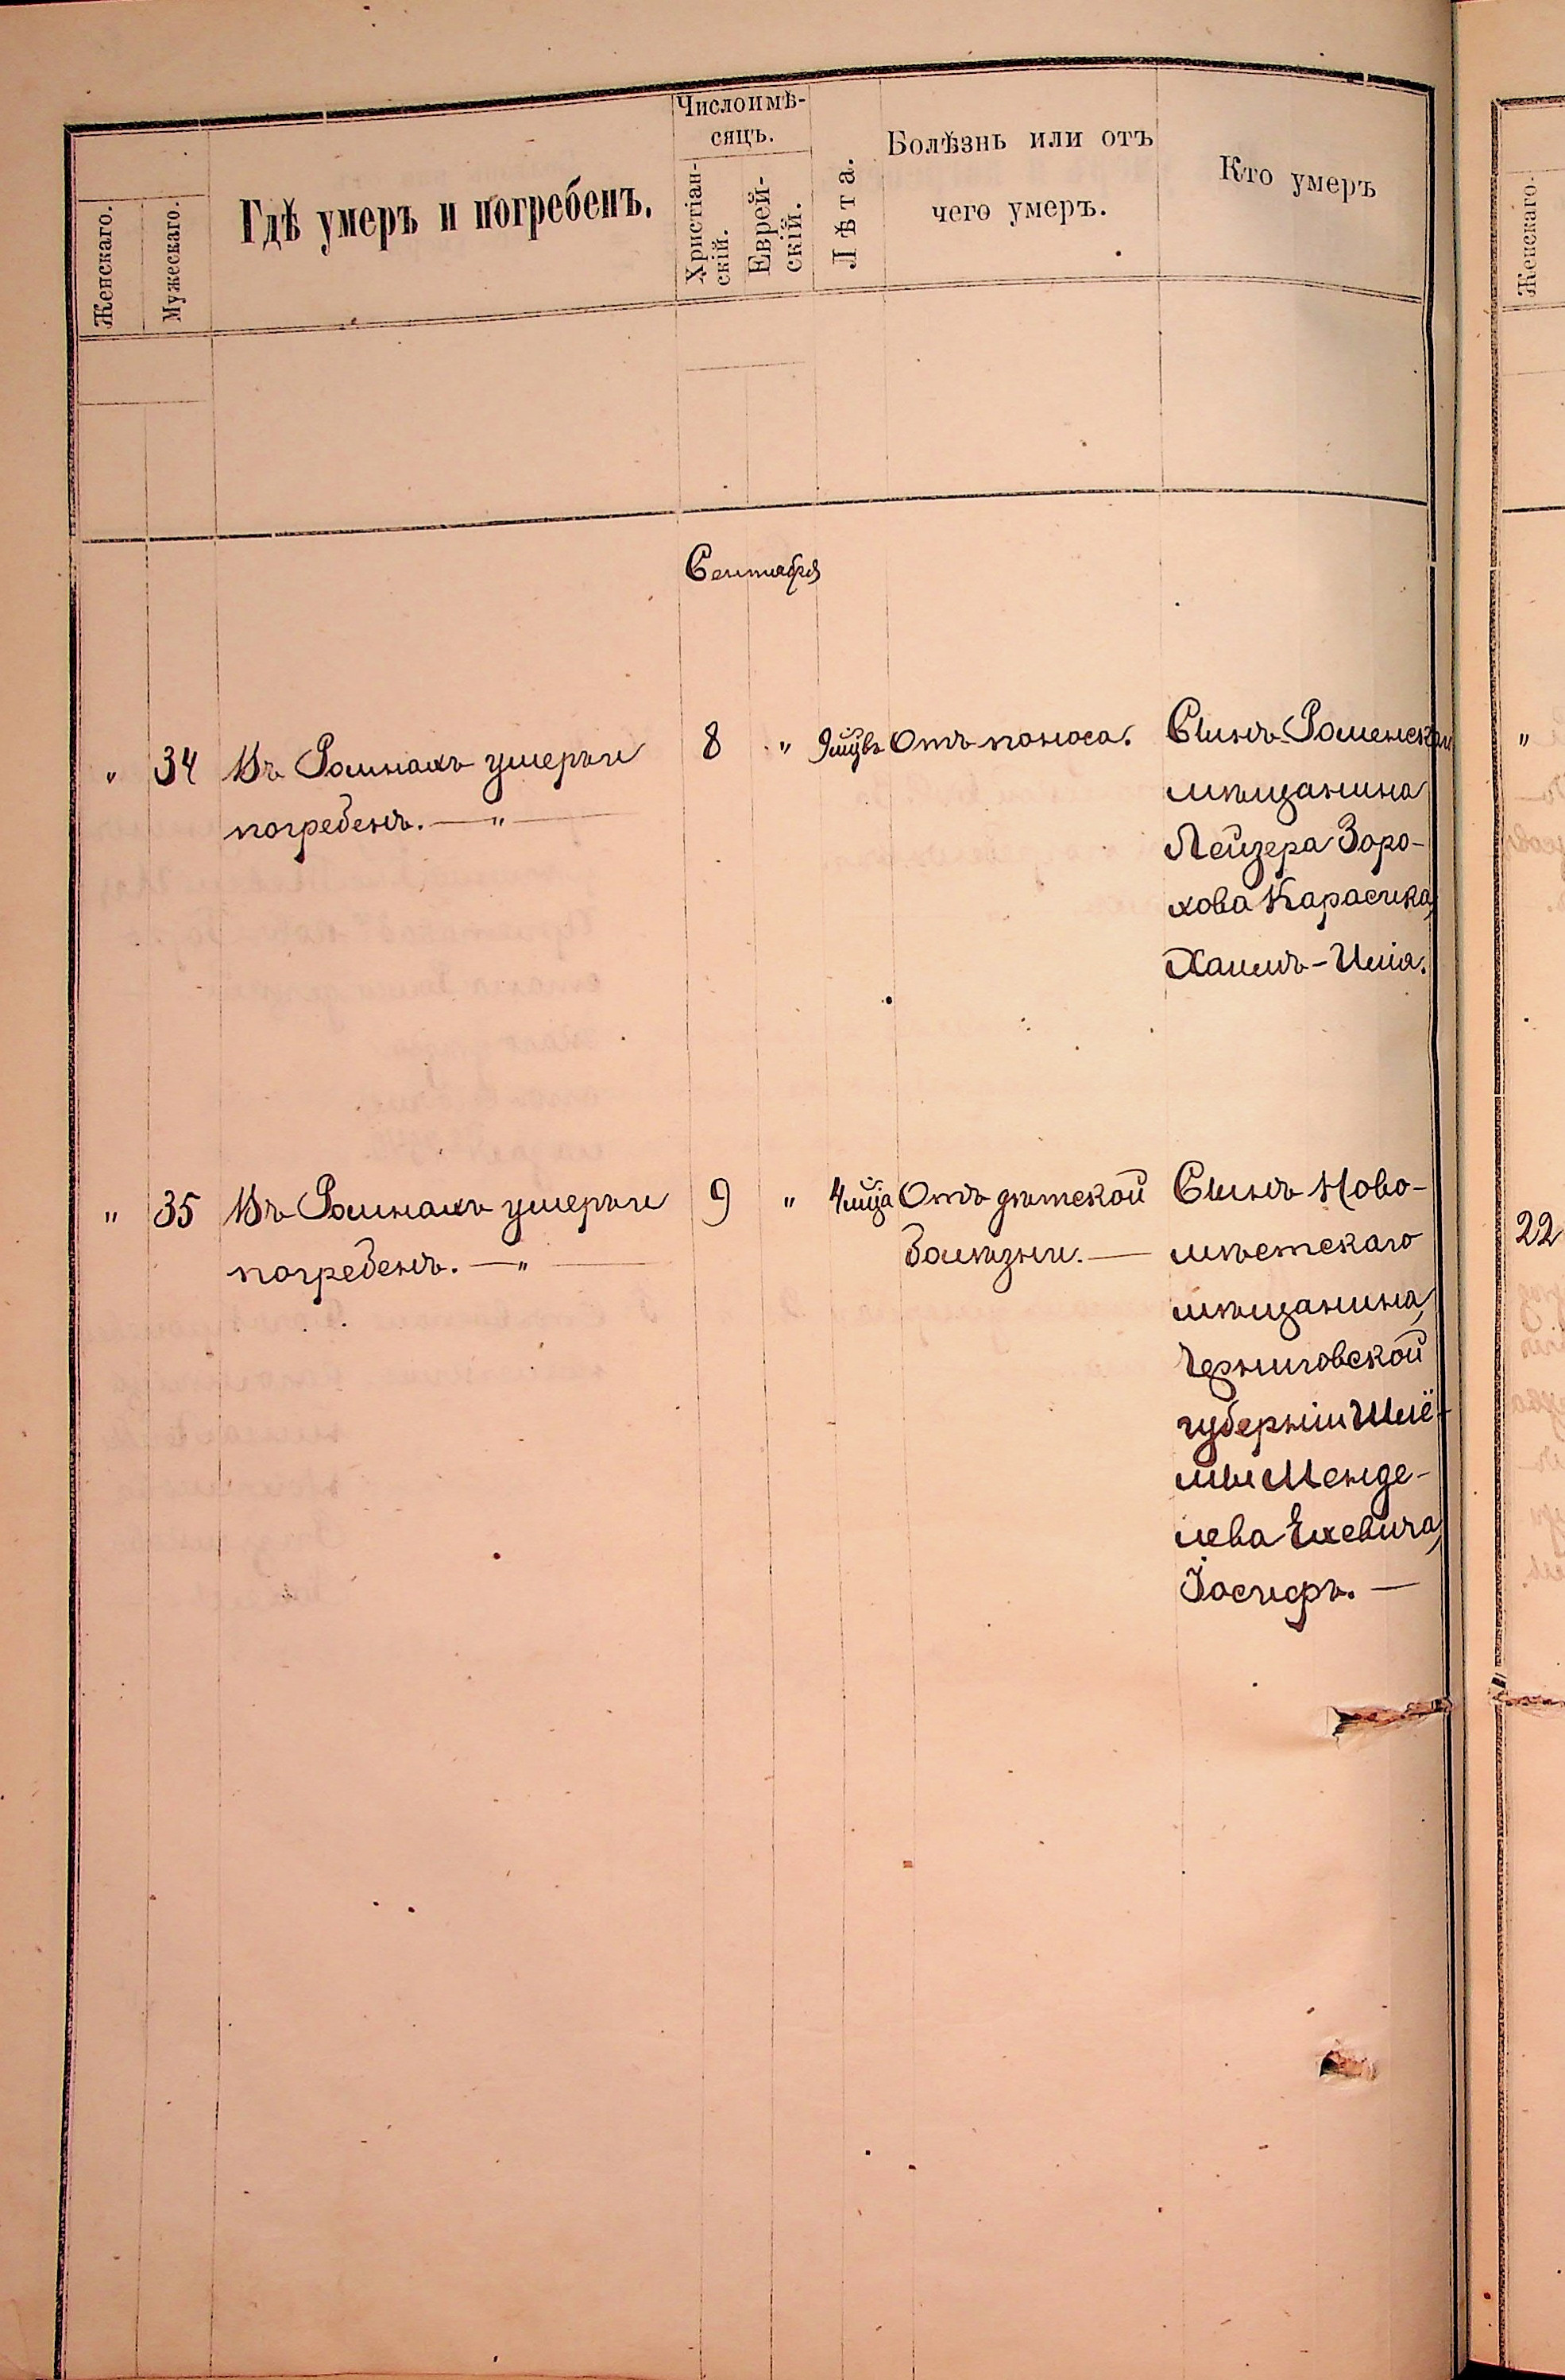 Женскаго.
Мужескаго.
Гдѣ умеръ и погребенъ.
Число и мѣ-
сяцъ.
Христіан-
скій.
Еврей-
скій.
Лѣта.
Болѣзнь или отъ
чего умеръ.
Кто умеръ
Женскаго.
Сентября
" 34 Въ Ромнахъ умеръ и
погребенъ. — " —
8 " 9 мцвъ Отъ поноса.
Сынъ Роменскаго
мѣщанина
Лейзера Зоро-
хова Карасика,
Хаимъ-Шія.
"
" 35 Въ Ромнахъ умеръ и
погребенъ. — " —
9 " 4 мца Отъ дѣтской
болѣзни. —
Сынъ Ново-
мѣстскаго
мѣщанина,
Черниговской
губерніи Шлё-
мы Менде-
лева Ехевича,
Іосифъ. —
22